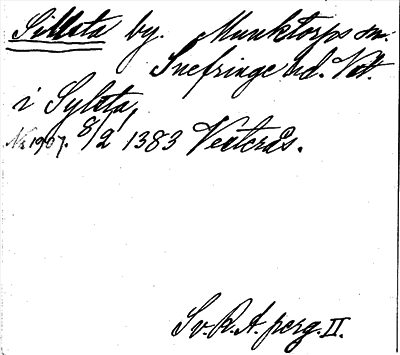 Sillsta by. Munktorps sn.
Snefringe hd. Vstm.
i Sylsta,
Nr 1907. 8/2 1383 Vesterås.
Sv. R. A. perg. II.